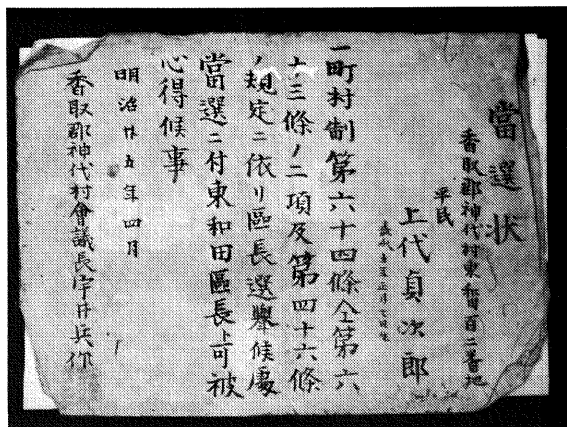 當選状
香取郡神代村東和田百二番地
平民
上代貞次郎
一町村制第六十四條仝第六
十三條ノ二項及第四十六條
ノ規定ニ依リ區長選擧候處
當選ニ付東和田區長ト可被
心得候事
明治廿五年四月
香取郡神代村會議長宇井兵作